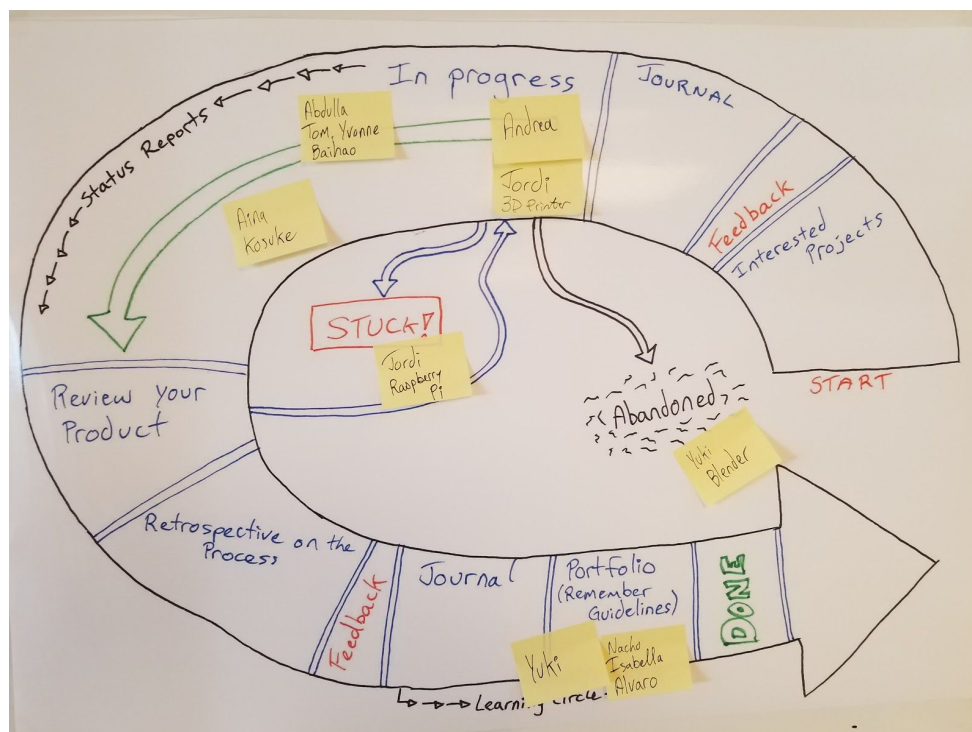 START
Interested
Projects
Feedback
JOURNAL
In progress
Andrea
Jordi
3D Printer
Abdulla
Tom, Yvonne
Baihao
Aina
Kosuke
Status Reports
STUCK!
Jordi
Raspberry
Pi
Abandoned
Yuki
Blender
Review your
Product
Retrospective on the
Process
Feedback
Journal
Portfolio
(Remember
Guidelines)
Yuki
Nacho
Isabella
Alvaro
Learning Circle
DONE